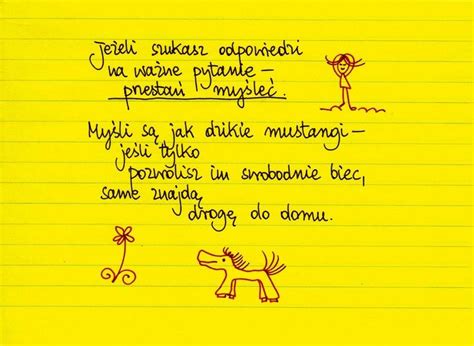 Jeżeli szukasz odpowiedzi
na ważne pytanie –
przestań myśleć.
Myśli są jak dzikie mustangi –
jeśli tylko
pozwolisz im swobodnie biec,
same znajdą
drogę do domu.